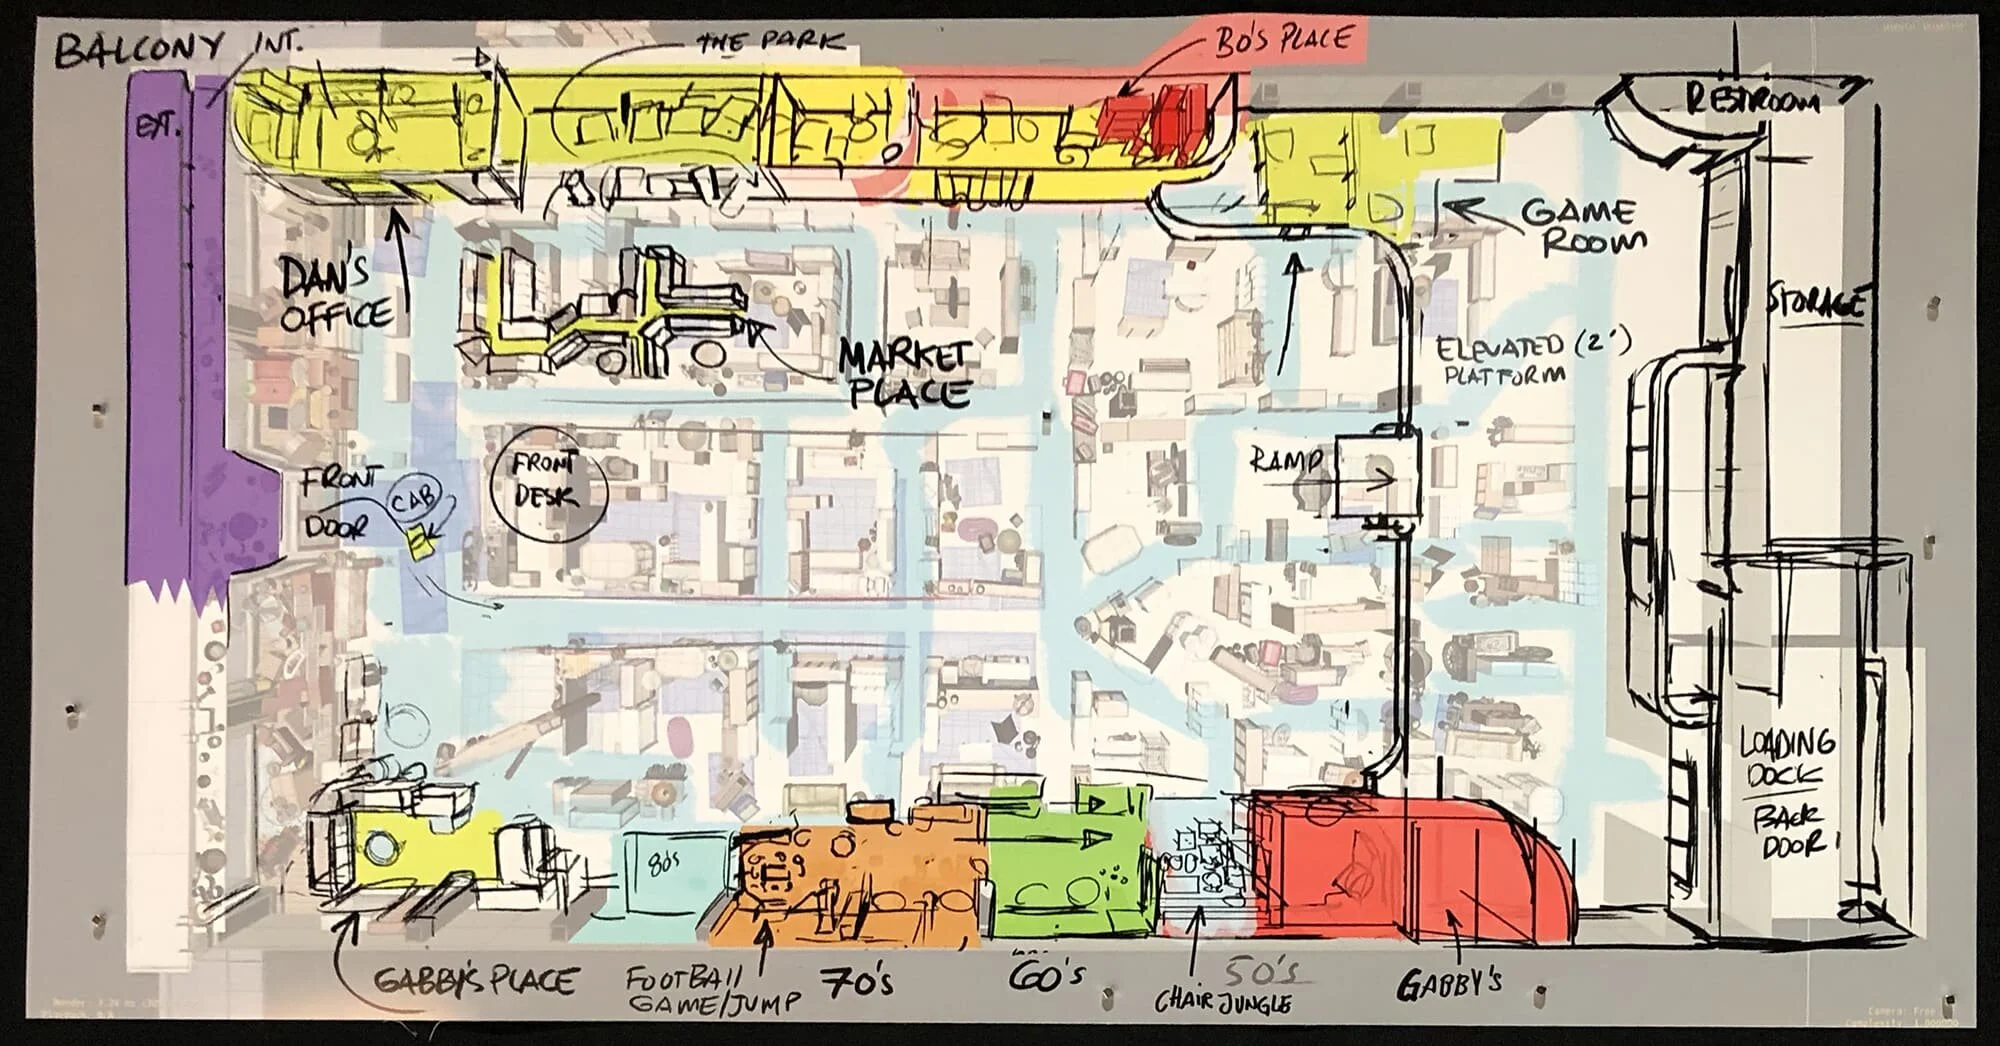 BALCONY
INT.
THE PARK
BO'S PLACE
EXT.
RESTROOM
DAN'S
OFFICE
GAME
ROOM
STORAGE
MARKET
PLACE
ELEVATED (2')
PLATFORM
FRONT
DOOR
CAB
FRONT
DESK
RAMP
LOADING
DOCK
BACK
DOOR
80's
GABBY'S PLACE
FOOTBALL
GAME/JUMP
70's
60's
50's
CHAIR JUNGLE
GABBY'S